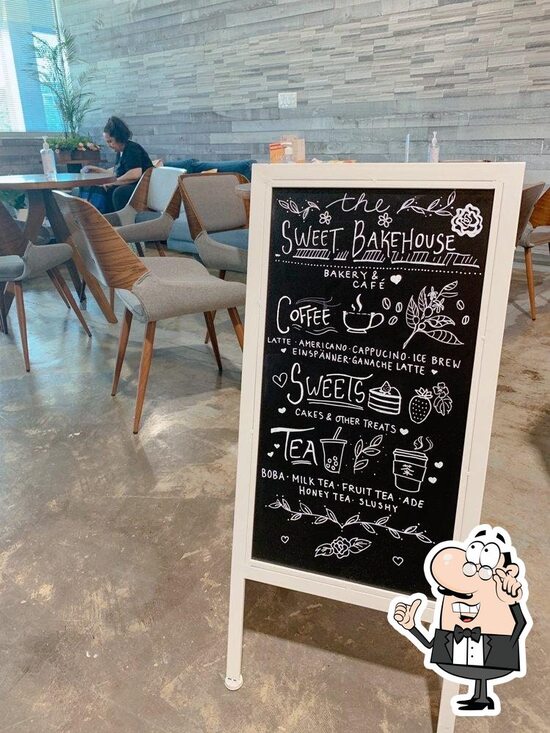 the
SWEET BAKEHOUSE
BAKERY &
CAFÉ
COFFEE
LATTE · AMERICANO · CAPPUCCINO · ICE BREW
EINSPÄNNER · GANACHE LATTE
SWEETS
CAKES & OTHER TREATS
TEA
茶
BOBA · MILK TEA · FRUIT TEA · ADE
HONEY TEA · SLUSHY